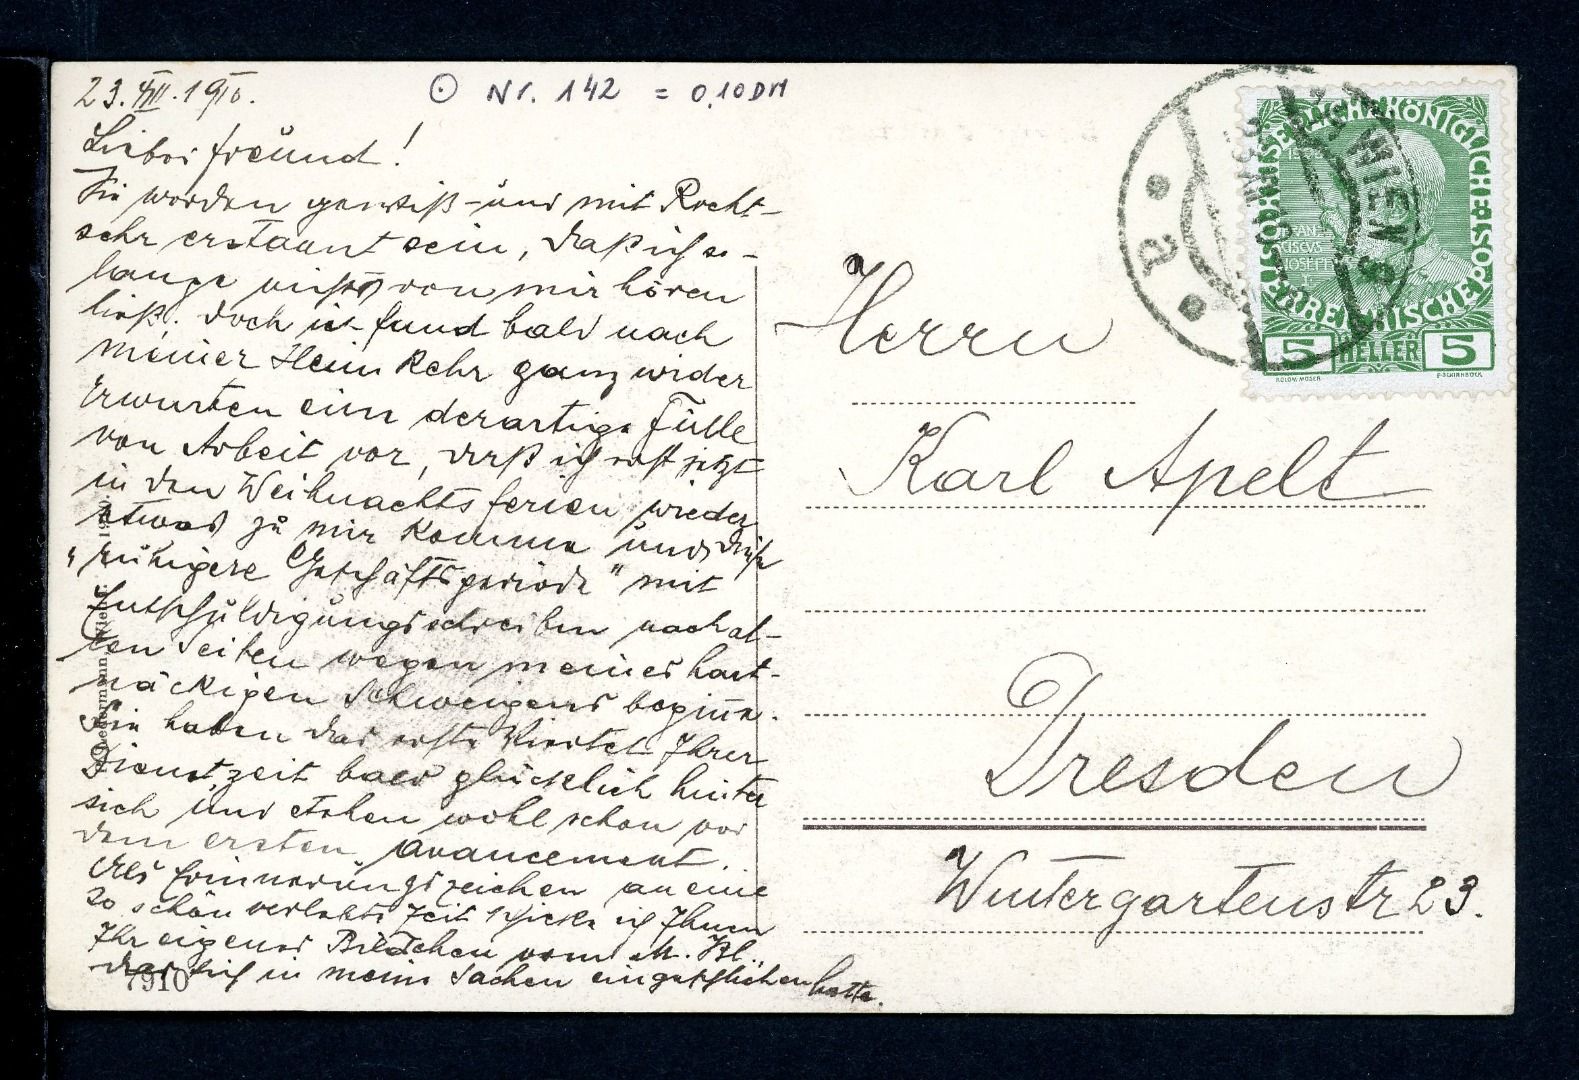 23. XII. 1910.
⊙ Nr. 142 = 0,10 DM
Lieber Freund!
Sie werden gewiß – und mit Recht –
sehr erstaunt sein, daß ich so
lange nichts von mir hören
ließ. Doch ich fand bald nach
meiner Heimkehr ganz wider
Erwarten eine derartige Fülle
von Arbeit vor, daß ich erst jetzt
in den Weihnachtsferien wieder
etwas zu mir komme und diese
"ruhigere Geschäftsperiode" mit
Entschuldigungsschreiben nach al-
len Seiten wegen meines hart-
näckigen Schweigens beginne.
Sie haben das erste Viertel Ihrer
Dienstzeit bald glücklich hinter
sich und stehen wohl schon vor
dem ersten Avancement.
Als Erinnerungszeichen an eine
so schön verlebte Zeit schicke ich Ihnen
Ihr eigenes Bildchen vom M. Bl.,
das sich in meine Sachen eingeschlichen hatte.
7910
Herrn
Karl Apelt
Dresden
Wintergartenstr 23.
WIEN
a
KAISERLICHE KÖNIGLICHE
ÖSTERREICHISCHE POST
FRAN
CISCVS
IOSEPH I
5 HELLER 5
KOLOM. MOSER
F. SCHIRNBÖCK